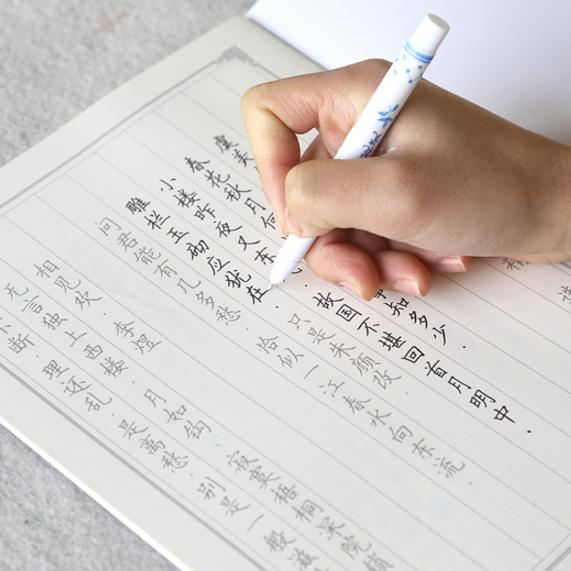 虞美
春花秋月何 知多少.
小楼昨夜又东 故国不堪回首月明中.
雕栏玉砌应犹在. 只是朱颜改.
问君能有几多愁. 恰似一江春水向东流.
相见欢. 李煜
无言独上西楼. 月如钩. 寂寞梧桐深院锁
不断. 理还乱. 是离愁. 别是一般滋